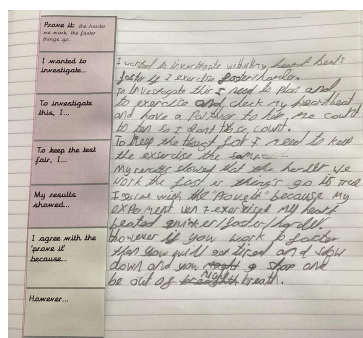 Prove it: the harder
we work, the faster
things go.
I wanted to
investigate...
To investigate
this, I...
To keep the test
fair, I...
My results
showed...
I agree with the
'prove it'
because...
However...
I wanted to investigate why my heart beats
faster if I exercise faster/harder.
To investigate this I need to Plan and
to exercise and check my heartbeat
and have a Partner to help me count
to ten so I dont lose count.
To keep the test fair I need to keep
the exersise the same
My results showed that the harder we
work the things go is true
I agree with the Prove it because my
experment wen I exercised my heart
beated
However if you work to faster
then you will get tired and slow
down and you stop and
be out of breath.